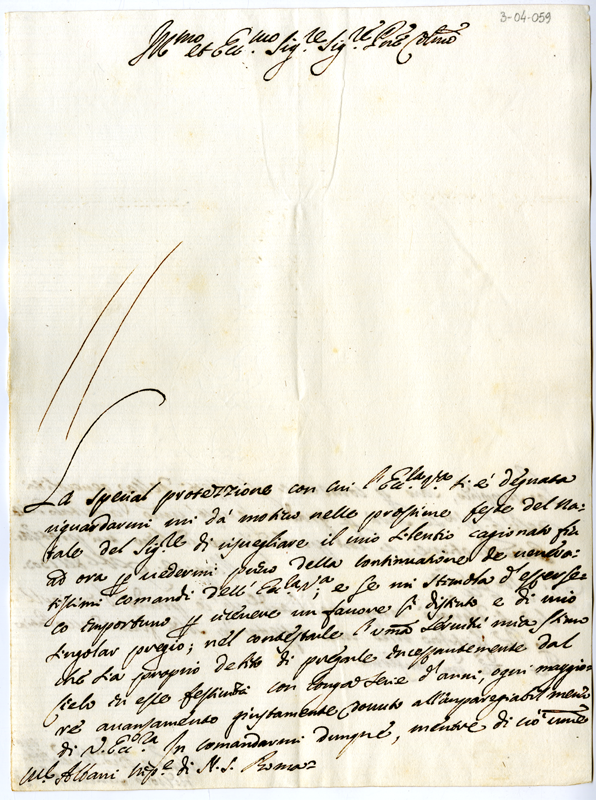 3-04-059
Ill.mo et Ecc.mo Sig.re Sig.re P.ne Col.mo
La special protezzione con cui l'Ecc.la V.ra si è degnata
riguardarmi mi dà motivo nelle prossime feste del Na:
tale del Sig.re di risvegliare il mio silentio cagionato fin
ad ora p vedermi privo della continuatione de venera:
tissimi comandi dell'Ecc.la V.ra; e se mi stimola d'esser se:
co importuno p ricevere un favore sì distinto e di mio
singolar pregio; nel contestarle l'uma servitù mia stimo
che sia proprio debito di pregarle incessantemente dal
Cielo in esse festività con longa serie d'anni, ogni maggio:
re avansamento giustamente dovuto all'impareggiabil merito
di V. Ecc.za In comandarmi dunque, mentre di ciò
Albani Nip.e di N. S. Roma=